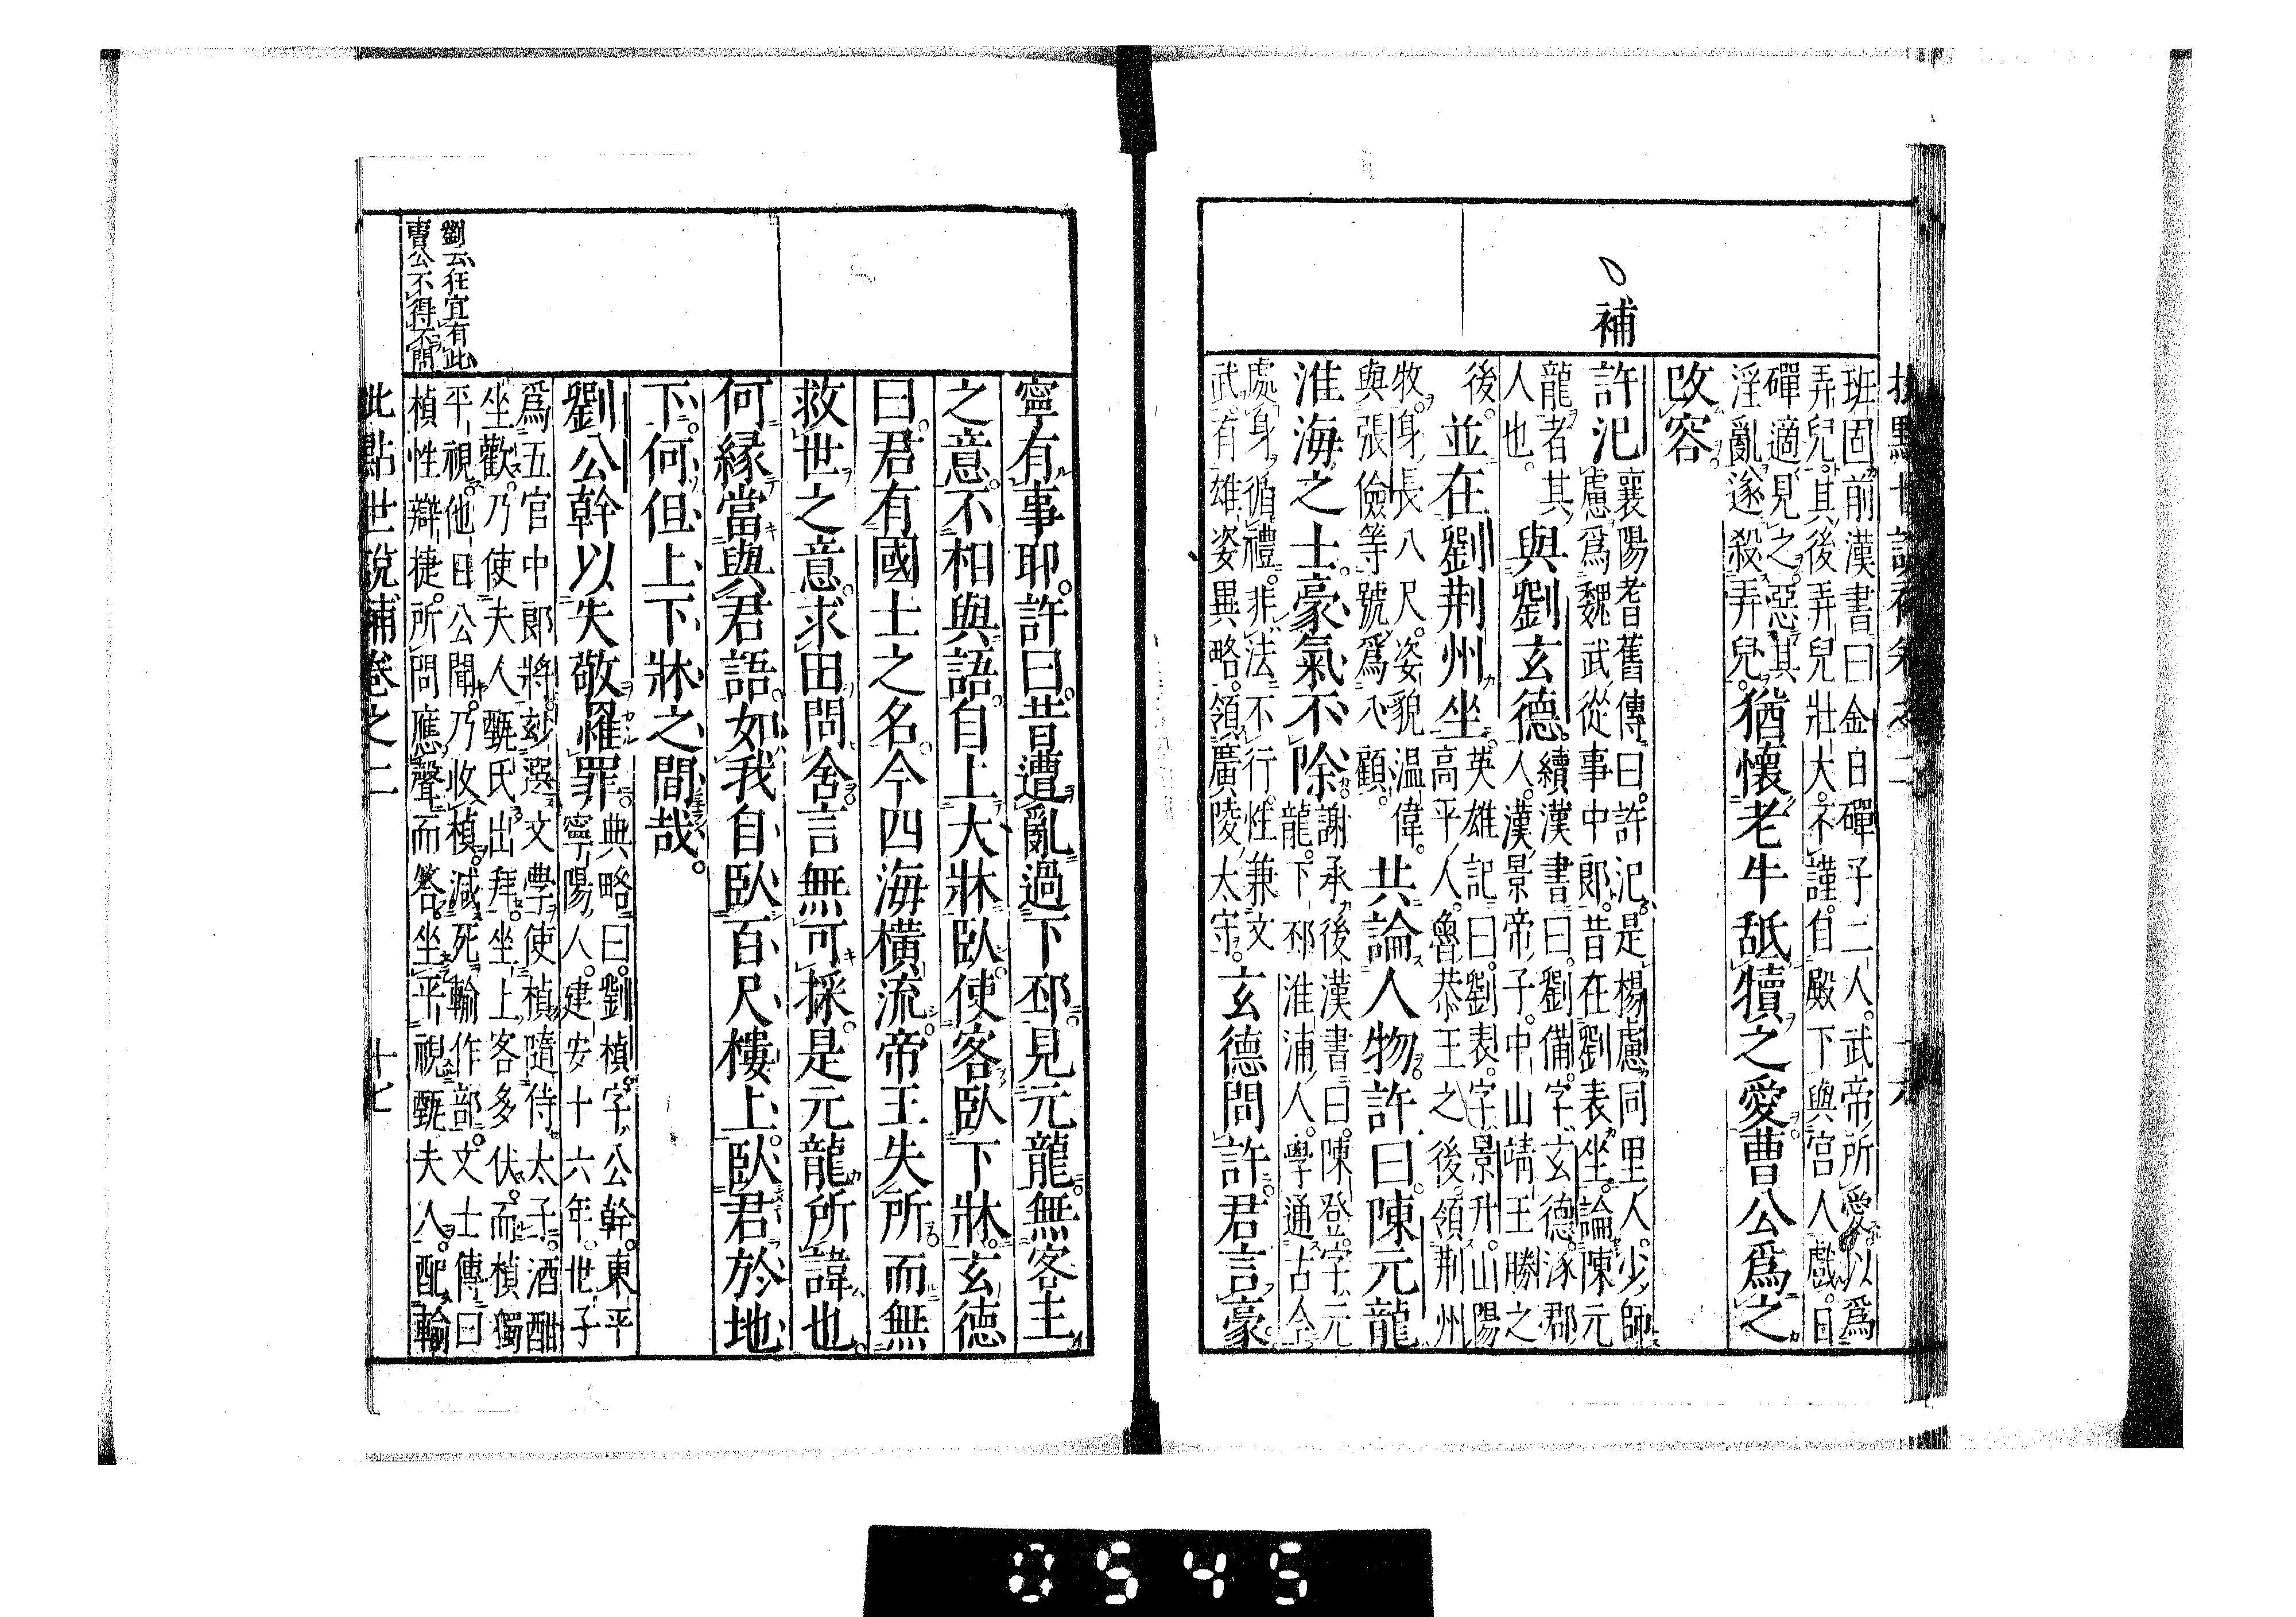 補
班固前漢書曰金日磾子二人武帝所愛以爲
弄兒其後弄兒壯大不謹自殿下與宮人戲日
磾適見之惡其
淫亂遂殺弄兒
猶懷老牛舐犢之愛曹公爲之
改容
許汜
襄陽耆舊傳曰許汜是楊慮同里人少師
慮爲魏武從事中郎昔在劉表坐論陳元
龍者其
人也
與劉玄德
續漢書曰劉備字玄德涿郡
人漢景帝子中山靖王勝之
後
並在劉荊州坐
英雄記曰劉表字景升山陽
高平人魯恭王之後領荊州
牧身長八尺姿貌温偉
與張儉等號爲八顧
共論人物許曰陳元龍
淮海之士豪氣不除
謝承後漢書曰陳登字元
龍下邳淮浦人學通古今
處身循禮非法不行性兼文
武有雄姿異略領廣陵太守
玄德問許君言豪
寧有事耶許曰昔遭亂過下邳見元龍無客主
之意不相與語自上大牀臥使客臥下牀玄德
曰君有國士之名今四海橫流帝王失所而無
救世之意求田問舍言無可採是元龍所諱也
何緣當與君語如我自臥百尺樓上臥君於地
下何但上下牀之間哉
劉公幹以失敬罹罪
典略曰劉楨字公幹東平
寧陽人建安十六年世子
爲五官中郎將玅選文學使楨隨侍太子酒酣
坐歡乃使夫人甄氏出拜坐上客多伏而楨獨
平視他日公聞乃收楨減死輸作部文士傳曰
楨性辯捷所問應聲而答坐平視甄夫人配輸
劉云狂宜有此
曹公不得不問
批點世說補卷之二
十七